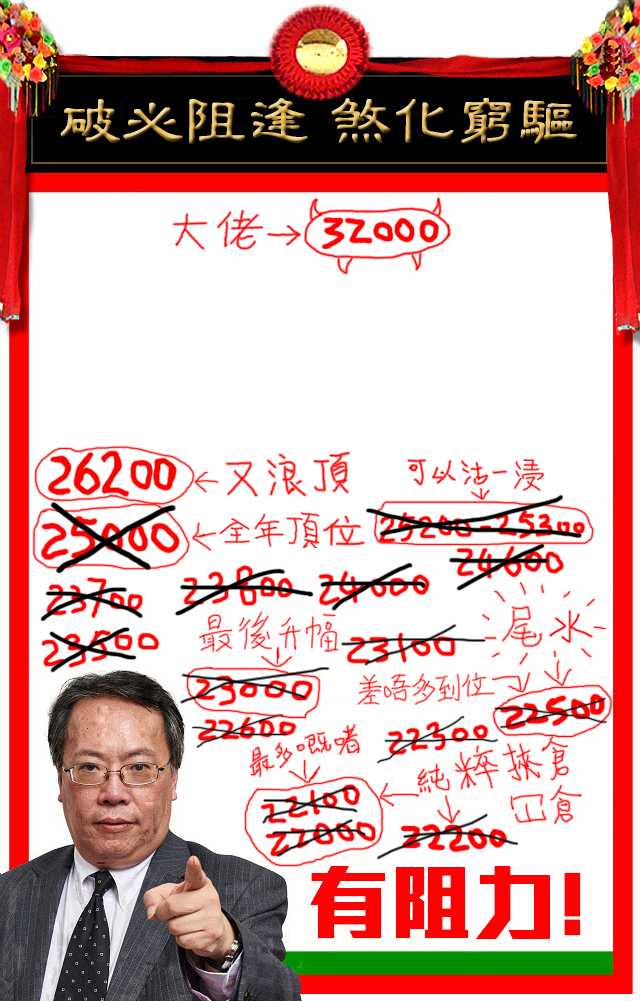 破必阻逢 煞化窮驅
大佬→32000
26200←又浪頂
可以沽一浸
25000←全年頂位
25200-25300
24600
23700
23800
24000
23500
最後升幅
23100
尾水
23000
差唔多到位
22500
22600
22300
最多嘅啫
純粹挾倉
冚倉
22100
22000
22200
有阻力!